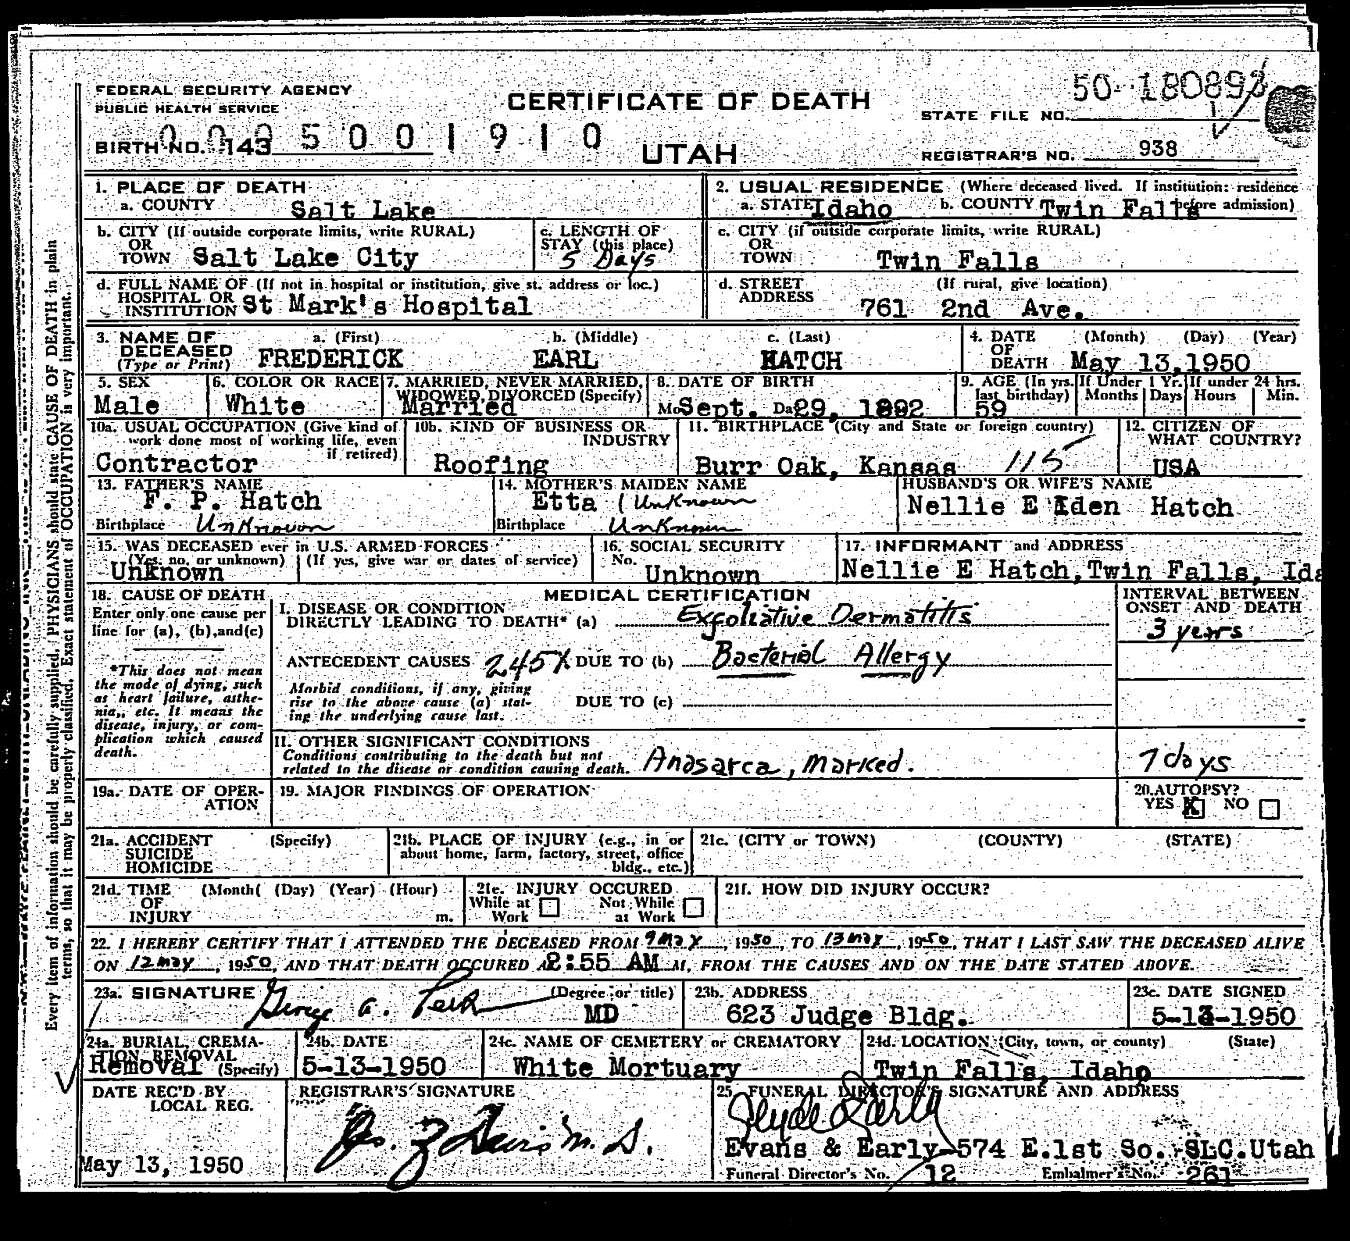 FEDERAL SECURITY AGENCY
PUBLIC HEALTH SERVICE
CERTIFICATE OF DEATH
UTAH
50-180893
STATE FILE NO.
BIRTH NO. 143
5001910
REGISTRAR'S NO. 938
1. PLACE OF DEATH
a. COUNTY Salt Lake
2. USUAL RESIDENCE (Where deceased lived. If institution: residence before admission)
a. STATE Idaho b. COUNTY Twin Falls
b. CITY (If outside corporate limits, write RURAL)
OR
TOWN Salt Lake City
c. LENGTH OF
STAY (this place)
5 Days
c. CITY (if outside corporate limits, write RURAL)
OR
TOWN Twin Falls
d. FULL NAME OF (If not in hospital or institution, give st. address or loc.)
HOSPITAL OR
INSTITUTION St Mark's Hospital
d. STREET (If rural, give location)
ADDRESS 761 2nd Ave.
3. NAME OF a. (First) b. (Middle) c. (Last)
DECEASED
(Type or Print) FREDERICK EARL HATCH
4. DATE (Month) (Day) (Year)
OF
DEATH May 13, 1950
5. SEX
Male
6. COLOR OR RACE
White
7. MARRIED, NEVER MARRIED,
WIDOWED, DIVORCED (Specify)
Married
8. DATE OF BIRTH
Mo Sept. Da 29, 1892
9. AGE (In yrs. last birthday)
59
If Under 1 Yr.
Months Days
If under 24 hrs.
Hours Min.
10a. USUAL OCCUPATION (Give kind of
work done most of working life, even
if retired)
Contractor
10b. KIND OF BUSINESS OR
INDUSTRY
Roofing
11. BIRTHPLACE (City and State or foreign country)
Burr Oak, Kansas 115
12. CITIZEN OF
WHAT COUNTRY?
USA
13. FATHER'S NAME
F. P. Hatch
Birthplace Unknown
14. MOTHER'S MAIDEN NAME
Etta (Unknown
Birthplace Unknown
HUSBAND'S OR WIFE'S NAME
Nellie E Iden Hatch
15. WAS DECEASED ever in U.S. ARMED FORCES
(Yes, no, or unknown) (If yes, give war or dates of service)
Unknown
16. SOCIAL SECURITY
No.
Unknown
17. INFORMANT and ADDRESS
Nellie E Hatch, Twin Falls, Ida
18. CAUSE OF DEATH
Enter only one cause per
line for (a), (b), and (c)
*This does not mean
the mode of dying, such
as heart failure, asthe-
nia, etc. It means the
disease, injury, or com-
plication which caused
death.
MEDICAL CERTIFICATION
I. DISEASE OR CONDITION
DIRECTLY LEADING TO DEATH* (a) Exfoliative Dermatitis
ANTECEDENT CAUSES 245X DUE TO (b) Bacterial Allergy
Morbid conditions, if any, giving
rise to the above cause (a) stat-
ing the underlying cause last.
DUE TO (c)
II. OTHER SIGNIFICANT CONDITIONS
Conditions contributing to the death but not
related to the disease or condition causing death. Anasarca, marked.
INTERVAL BETWEEN
ONSET AND DEATH
3 years
7 days
19a. DATE OF OPER-
ATION
19. MAJOR FINDINGS OF OPERATION
20. AUTOPSY?
YES X NO
21a. ACCIDENT (Specify)
SUICIDE
HOMICIDE
21b. PLACE OF INJURY (e.g., in or
about home, farm, factory, street, office
bldg., etc.)
21c. (CITY or TOWN) (COUNTY) (STATE)
21d. TIME (Month( (Day) (Year) (Hour)
OF
INJURY m.
21e. INJURY OCCURED
While at Work Not While at Work
21f. HOW DID INJURY OCCUR?
22. I HEREBY CERTIFY THAT I ATTENDED THE DECEASED FROM 9 May, 1950, TO 13 May, 1950, THAT I LAST SAW THE DECEASED ALIVE
ON 12 May, 1950 AND THAT DEATH OCCURED A 2:55 AM M, FROM THE CAUSES AND ON THE DATE STATED ABOVE.
23a. SIGNATURE (Degree or title)
George A. MD
23b. ADDRESS
623 Judge Bldg.
23c. DATE SIGNED
5-13-1950
24a. BURIAL, CREMA-
TION, REMOVAL
(Specify)
Removal
24b. DATE
5-13-1950
24c. NAME OF CEMETERY or CREMATORY
White Mortuary
24d. LOCATION (City, town, or county) (State)
Twin Falls, Idaho
DATE REC'D BY
LOCAL REG.
May 13, 1950
REGISTRAR'S SIGNATURE
M.D.
25. FUNERAL DIRECTOR'S SIGNATURE AND ADDRESS
Evans & Early-574 E.1st So. SLC.Utah
Funeral Director's No. 12 Embalmer's No. 261
Every item of information should be carefully supplied. PHYSICIANS should state CAUSE OF DEATH in plain
terms, so that it may be properly classified. Exact statement of OCCUPATION is very important.